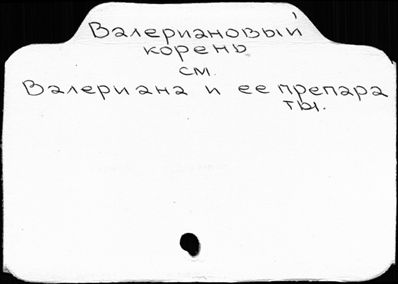 Валериановый
корень
см.
Валериана и ее препара
ты.